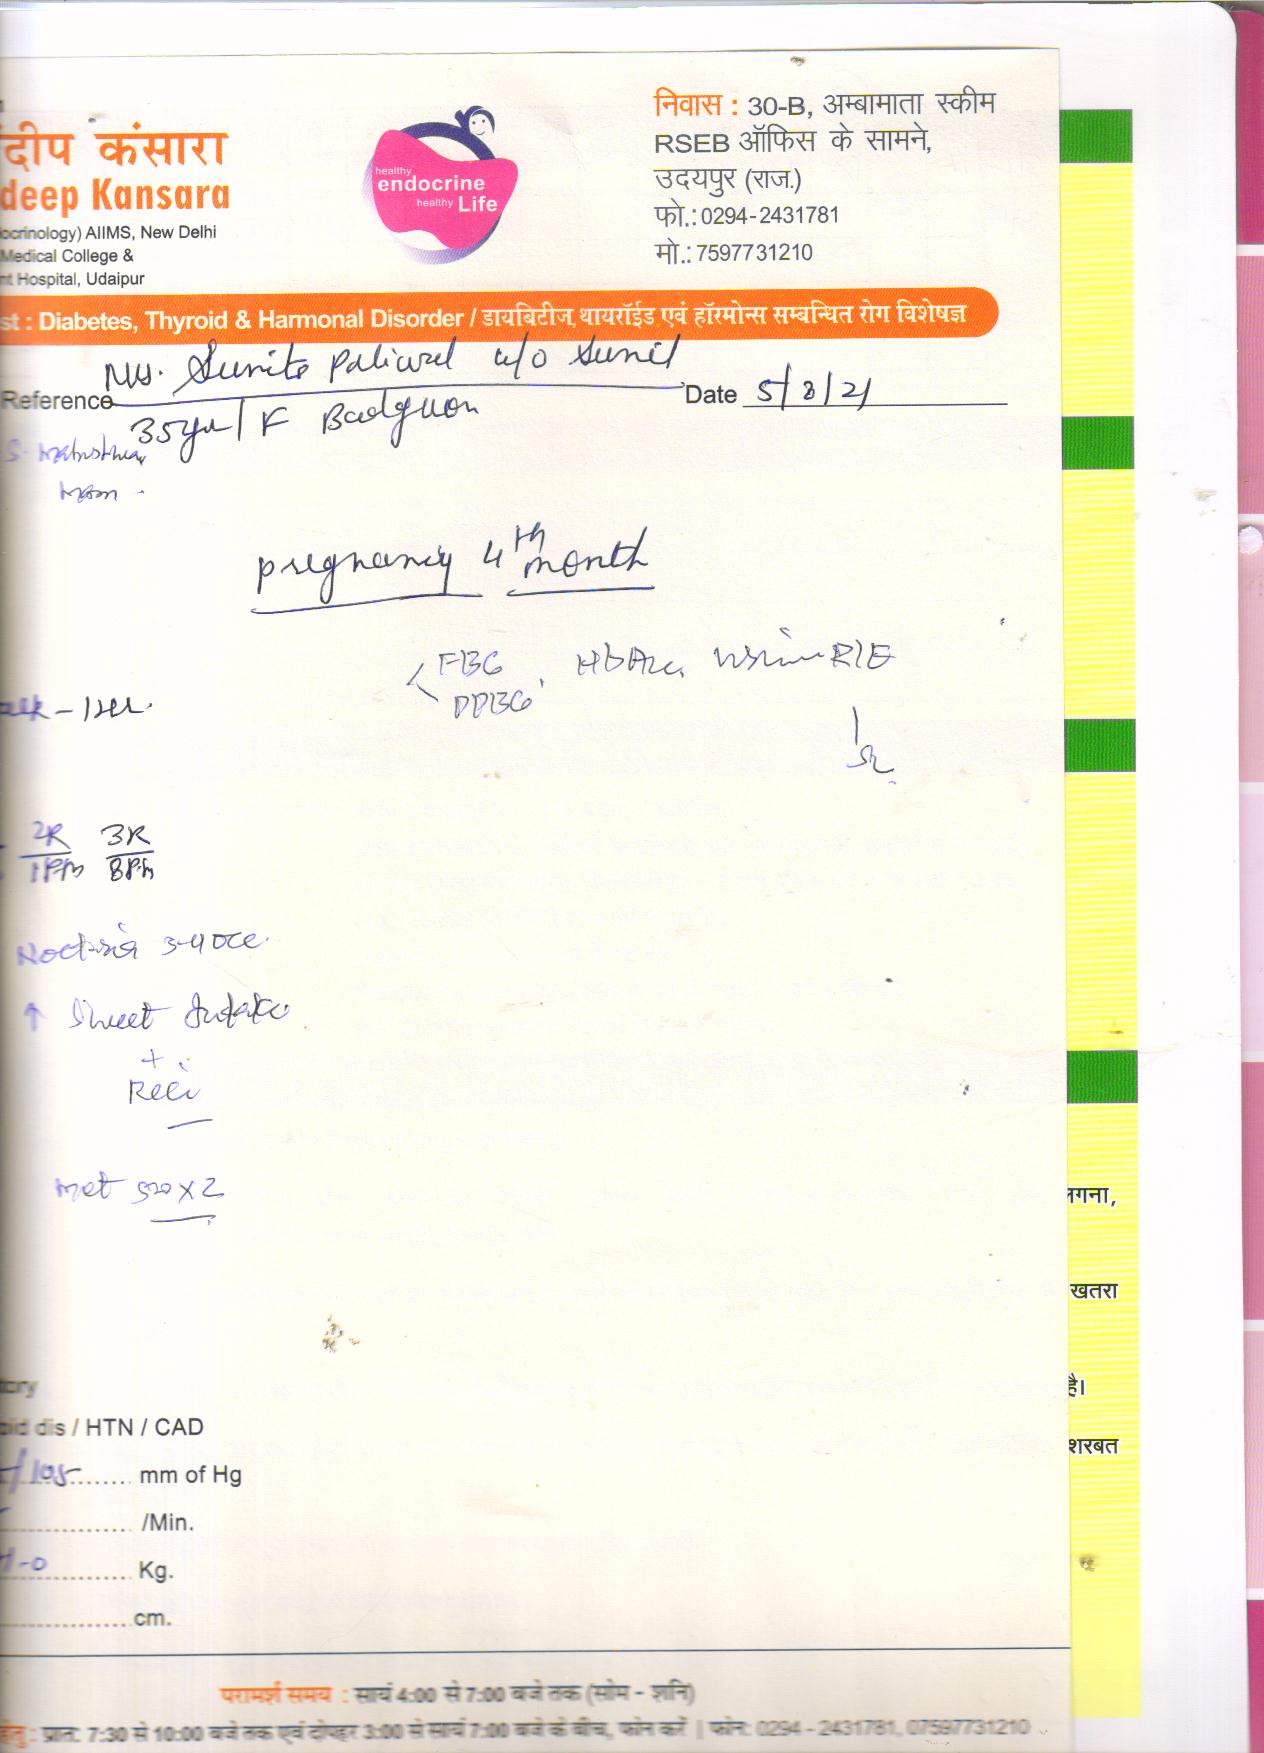 दीप कंसारा
deep Kansara
ocrinology) AIIMS, New Delhi
Medical College &
nt Hospital, Udaipur
healthy
endocrine
healthy Life
निवास : 30-B, अम्बामाता स्कीम
RSEB ऑफिस के सामने,
उदयपुर (राज.)
फो.: 0294-2431781
मो.: 7597731210
st : Diabetes, Thyroid & Harmonal Disorder / डायबिटीज, थायरॉईड एवं हॉरमोन्स सम्बन्धित रोग विशेषज्ञ
Sunita Paliwal w/o Sunil
Reference
Date 5/8/21
35yr/F Badgaon
pregnancy 4th month
FBG
PPBG, HbA1c, Urine R/E
- 1 Hr.
2R 3R
1PM 8PM
Nocturia 3-4
↑ Sweet Intake
+
met 500 x 2
tory
oid dis / HTN / CAD
/105 ........ mm of Hg
................ /Min.
................ Kg.
................ cm.
लगना,
खतरा
है।
शरबत
परामर्श समय : सायं 4:00 से 7:00 बजे तक (सोम - शनि)
हेतु : प्रात: 7:30 से 10:00 बजे तक एवं दोपहर 3:00 से सायं 7:00 बजे के बीच, फोन करें | फोन: 0294 - 2431781, 07597731210